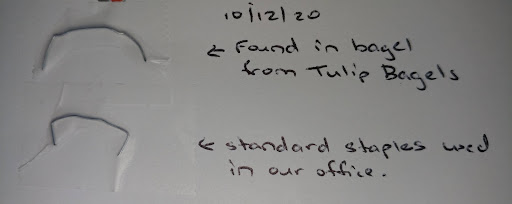 10/12/20
← Found in bagel
from Tulip Bagels
← standard staples used
in our office.